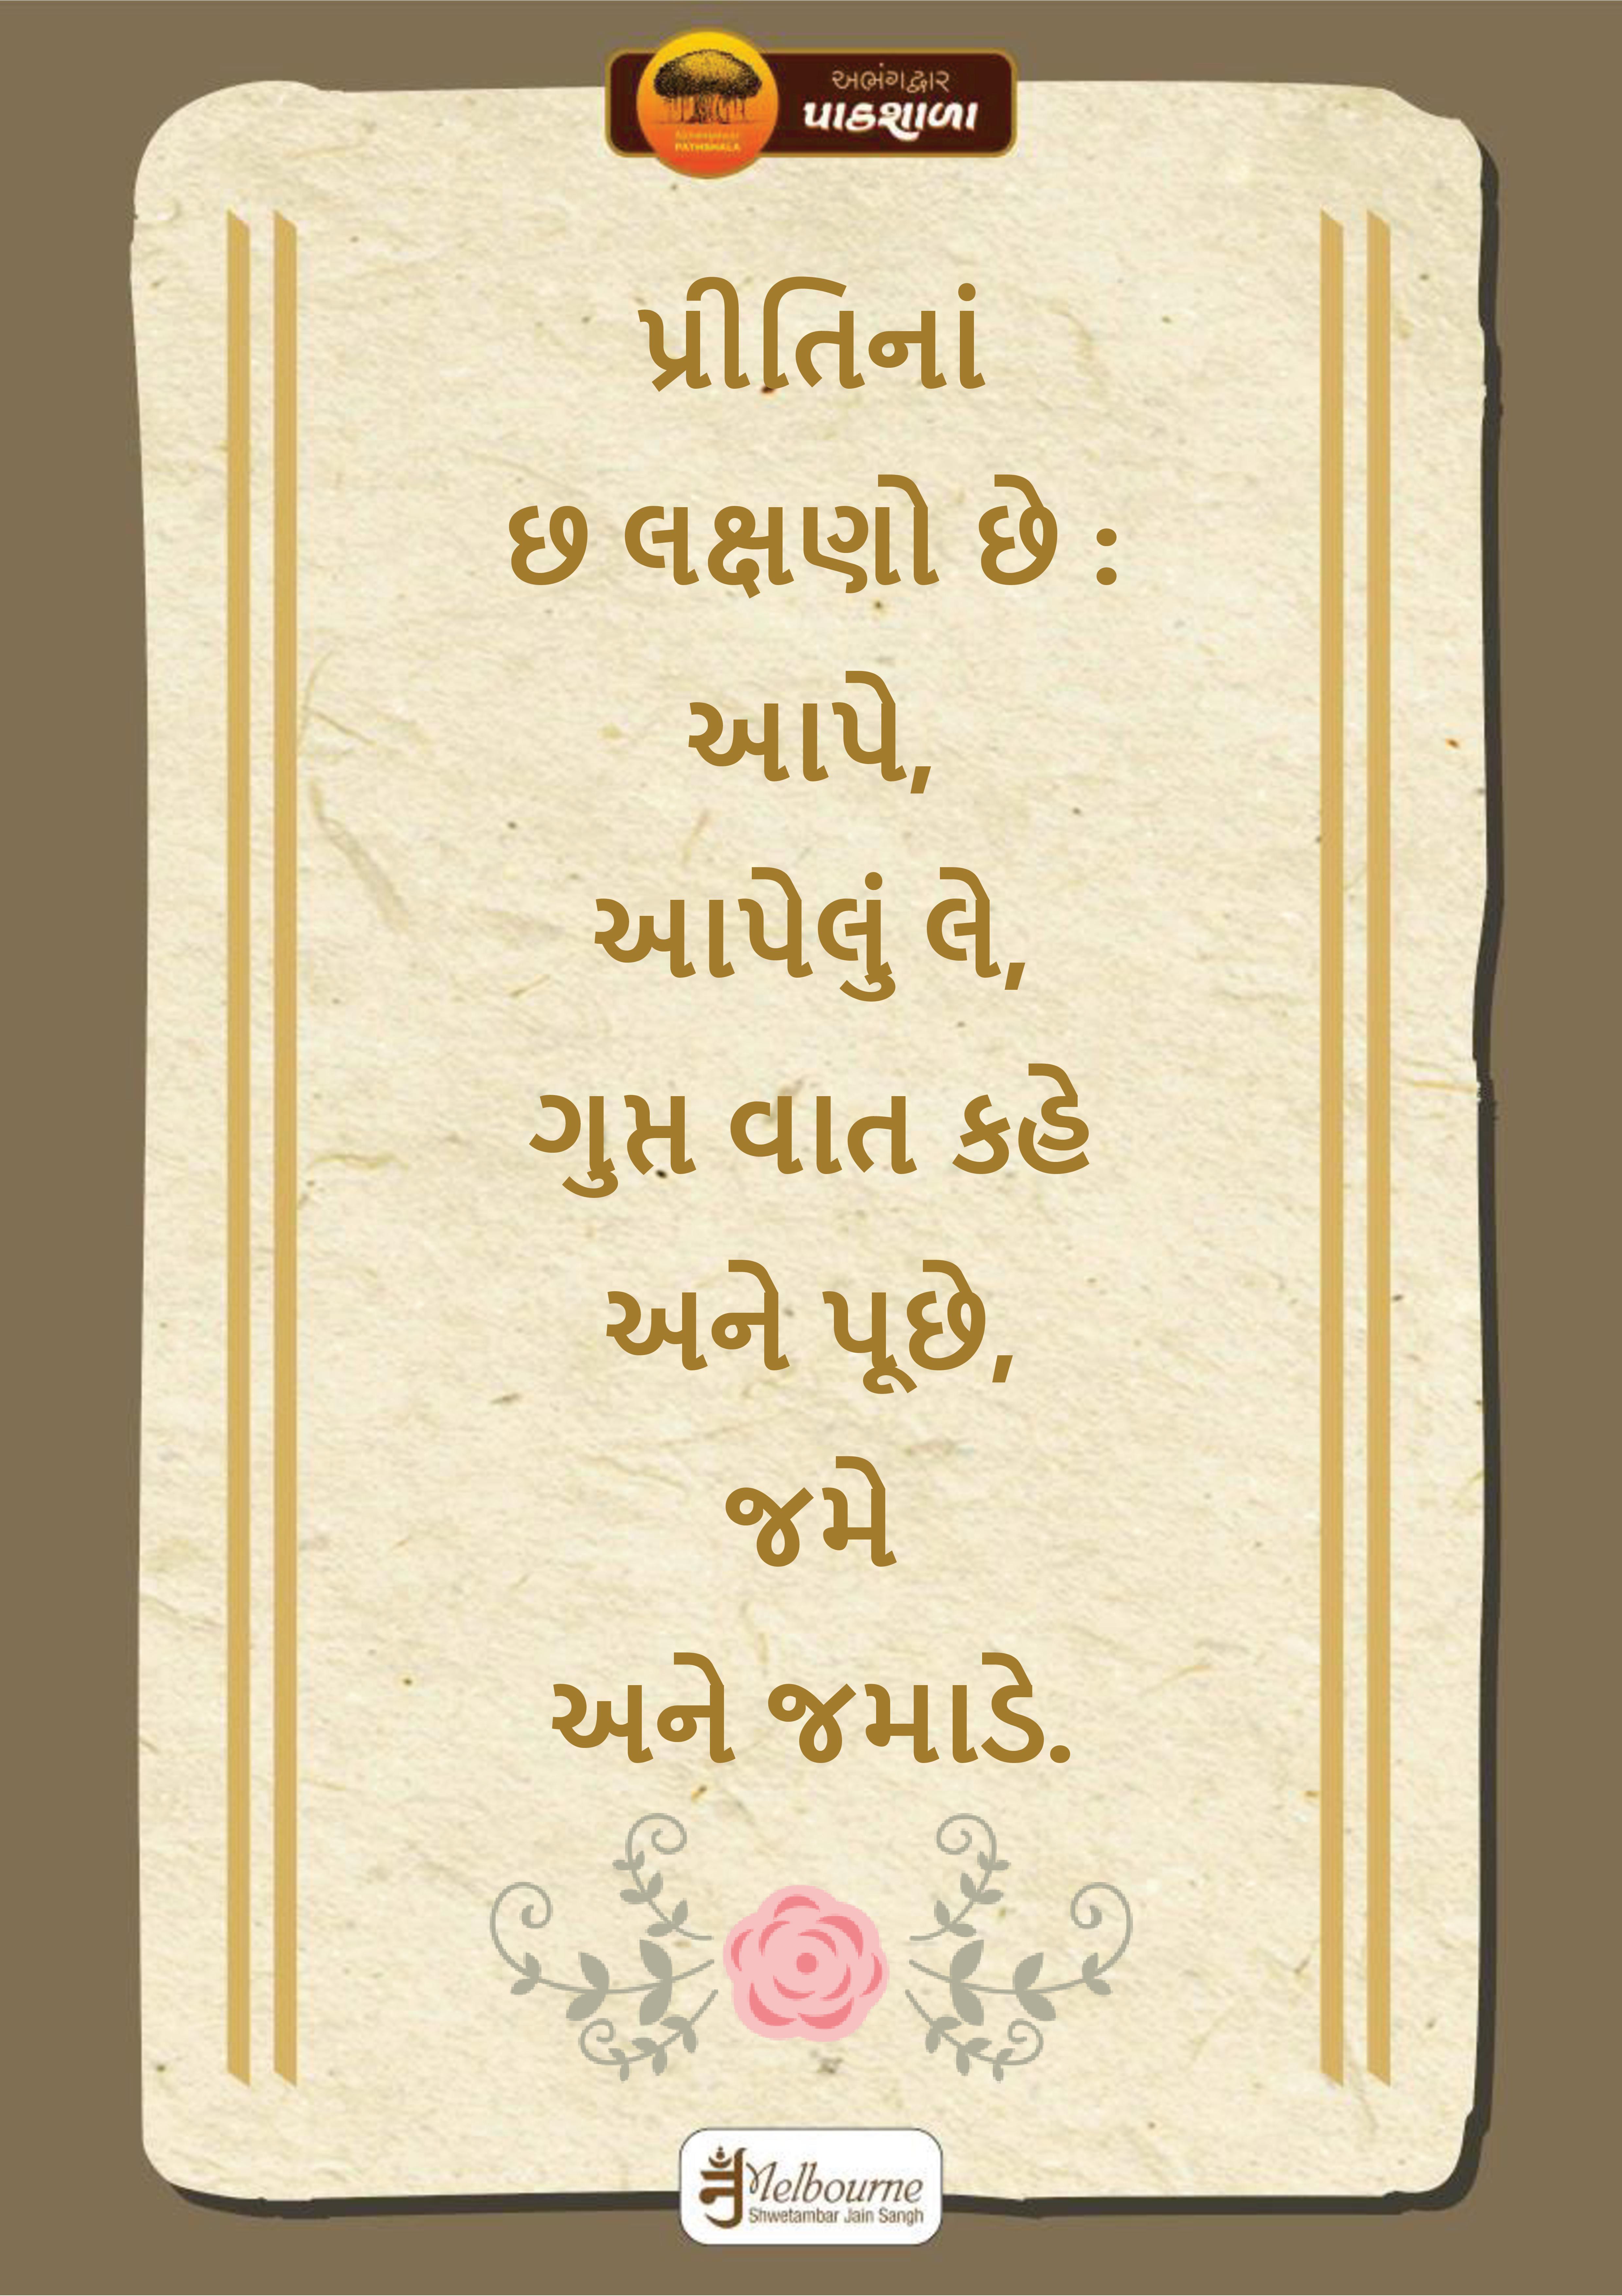 અભંગદ્વાર
પાઠશાળા
PATHSHALA
પ્રીતિનાં
છ લક્ષણો છે :
આપે,
આપેલું લે,
ગુપ્ત વાત કહે
અને પૂછે,
જમે
અને જમાડે.
Melbourne
Shwetambar Jain Sangh